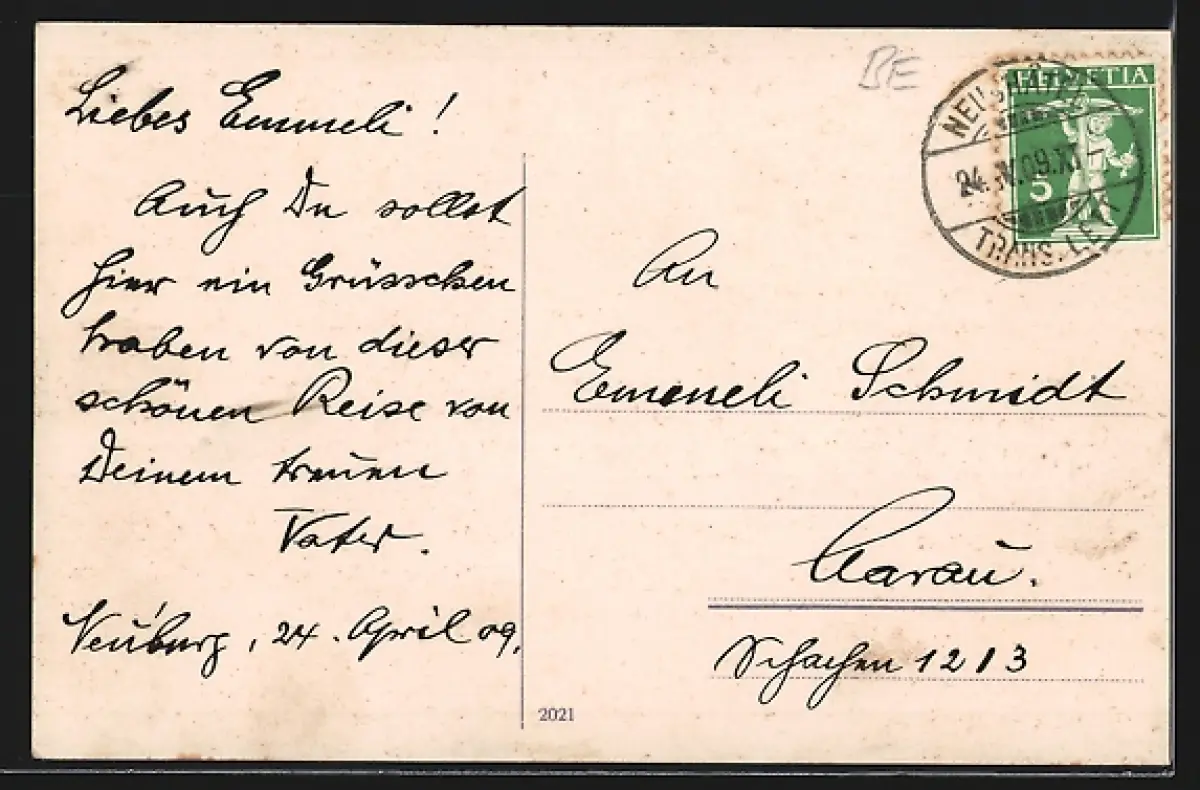 Liebes Emmeli!
Auch Du sollst
hier ein Grüsschen
haben von dieser
schönen Reise von
Deinem treuen
Vater.
Neuburg, 24. April 09.
BE
HELVETIA
5
NEUCHÂTEL
24.IV.09.XI-
TRANS. LET
An
Emmeli Schmidt
Aarau.
Schachen 1213
2021